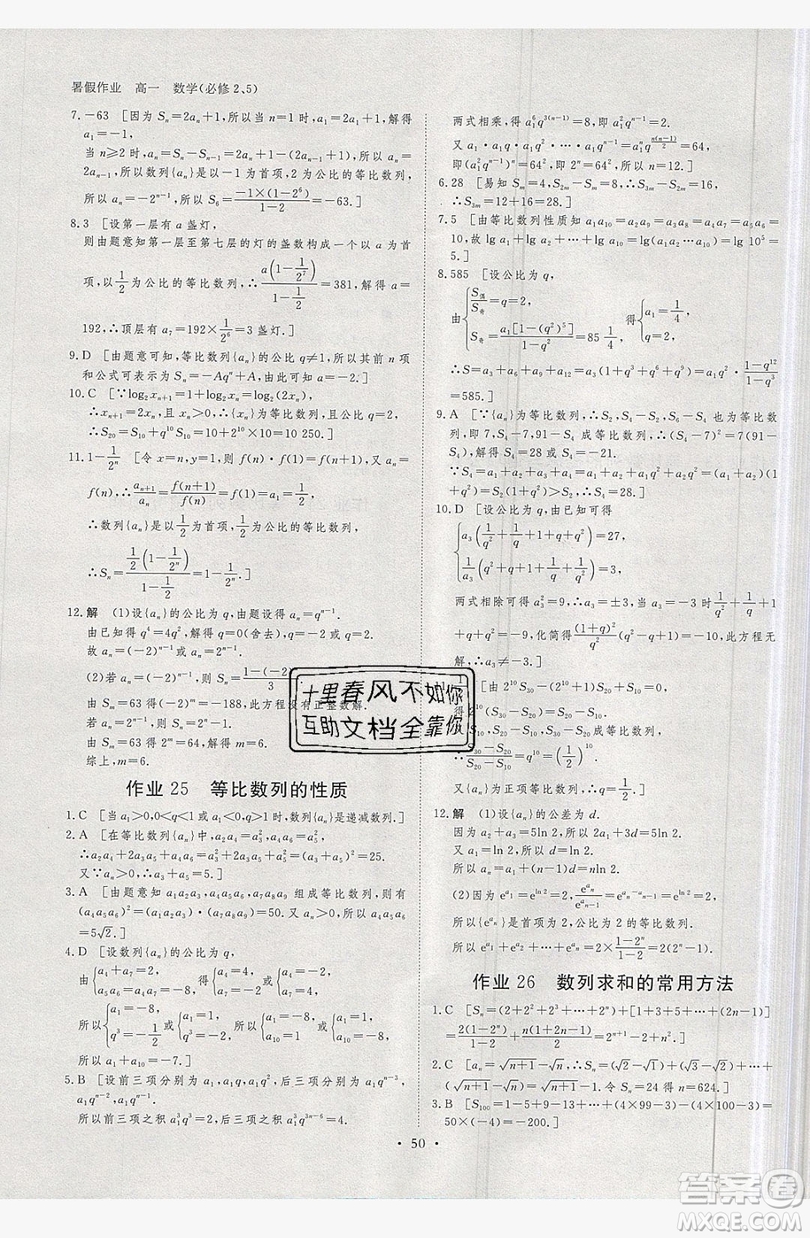 暑假作业　高一　数学(必修2、5)
7.－63　[因为 Sₙ＝2aₙ＋1，所以当 n＝1 时，a₁＝2a₁＋1，解得
a₁＝－1，
当 n≥2 时，aₙ＝Sₙ－Sₙ₋₁＝2aₙ＋1－(2aₙ₋₁＋1)，所以 aₙ＝
2aₙ₋₁，所以数列{aₙ}是以－1 为首项，2 为公比的等比数列，
所以 aₙ＝－2ⁿ⁻¹，所以 S₆＝－1×(1－2⁶)/(1－2)＝－63.]
8.3　[设第一层有 a 盏灯，
则由题意知第一层至第七层的灯的盏数构成一个以 a 为首
项，以 1/2 为公比的等比数列，∴ a(1－1/2⁷)/(1－1/2)＝381，解得 a＝
192，∴顶层有 a₇＝192×1/2⁶＝3 盏灯.]
9.D　[由题意可知，等比数列{aₙ}的公比 q≠1，所以其前 n 项
和公式可表示为 Sₙ＝－Aqⁿ＋A.]
10.C　[∵log₂xₙ₊₁＝1＋log₂xₙ＝log₂(2xₙ)，
∴xₙ₊₁＝2xₙ，且 xₙ＞0，∴{xₙ}为等比数列，且公比 q＝2，
∴S₂₀＝S₁₀＋q¹⁰S₁₀＝10＋2¹⁰×10＝10 250.]
11.1－1/2ⁿ　[令 x＝n，y＝1，则 f(n)·f(1)＝f(n＋1)，又 aₙ＝
f(n)，∴aₙ₊₁/aₙ＝f(n＋1)/f(n)＝f(1)＝a₁＝1/2，
∴数列{aₙ}是以 1/2 为首项，1/2 为公比的等比数列，
∴Sₙ＝1/2(1－1/2ⁿ)/(1－1/2)＝1－1/2ⁿ.]
12.解　(1)设{aₙ}的公比为 q，由题设得 aₙ＝qⁿ⁻¹.
由已知得 q⁴＝4q²，解得 q＝0(舍去)，q＝－2 或 q＝2.
故 aₙ＝(－2)ⁿ⁻¹或 aₙ＝2ⁿ⁻¹.
(2)若 aₙ＝(－2)ⁿ⁻¹，则 Sₙ＝1－(－2)ⁿ/3.
由 Sₘ＝63 得(－2)ᵐ＝－188，此方程没有正整数解.
若 aₙ＝2ⁿ⁻¹，则 Sₙ＝2ⁿ－1.
由 Sₘ＝63 得 2ᵐ＝64，解得 m＝6.
综上，m＝6.
作业 25　等比数列的性质
1.C　[当 a₁＞0，0＜q＜1 或 a₁＜0，q＞1 时，数列是递减数列.]
2.A　[在等比数列{aₙ}中，∵a₂a₄＝a₃²，a₄a₆＝a₅²，
∴a₂a₄＋2a₃a₅＋a₄a₆＝a₃²＋2a₃a₅＋a₅²＝(a₃＋a₅)²＝25.
又∵aₙ＞0，∴a₃＋a₅＝5.]
3.A　[由题意知 a₁a₂a₃，a₄a₅a₆，a₇a₈a₉ 组成等比数列，所以
(a₄a₅a₆)²＝(a₁a₂a₃)(a₇a₈a₉)＝50.又 aₙ＞0，所以 a₄a₅a₆
＝5√2.]
4.D　[设数列{aₙ}的公比为 q，
由{a₄＋a₇＝2，a₅·a₆＝a₄·a₇＝－8， 得{a₄＝4，a₇＝－2 或{a₄＝－2，a₇＝4，
所以{a₁＝－8，q³＝－1/2 或{a₁＝1，q³＝－2，所以{a₁＝－8，a₁₀＝1 或{a₁＝1，a₁₀＝－8，
所以 a₁＋a₁₀＝－7.]
5.B　[设前三项分别为 a₁，a₁q，a₁q²，后三项分别为 a₁qⁿ⁻³，
a₁qⁿ⁻²，a₁qⁿ⁻¹.
所以前三项之积 a₁³q³＝2，后三项之积 a₁³q³ⁿ⁻⁶＝4.
两式相乘，得 a₁⁶q³⁽ⁿ⁻¹⁾＝8，即 a₁²qⁿ⁻¹＝2.
又 a₁·a₁q·a₁q²·…·a₁qⁿ⁻¹＝a₁ⁿq^(n(n－1)/2)＝64，
即(a₁²qⁿ⁻¹)ⁿ＝64²，即 2ⁿ＝64²，所以 n＝12.]
6.28　[易知 Sₘ，S₂ₘ－Sₘ，S₃ₘ－S₂ₘ 成等比数列，
∴S₃ₘ＝4＋(12－4)＋16＝28.]
7.5　[由等比数列性质知 a₁a₁₀＝a₂a₉＝a₃a₈＝a₄a₇＝a₅a₆＝
10，故 lg a₁＋lg a₂＋…＋lg a₁₀＝lg(a₁a₂·…·a₁₀)＝lg 10⁵＝
5.]
8.585　[设公比为 q，
由{S偶/S奇＝q＝2，S奇＝a₁[1－(q²)⁵]/(1－q²)＝85 1/4， 得{a₁＝1/4，q＝2，
∴S＝a₃＋a₆＋a₉＋…＋a₁₈＝a₃·(1－q¹⁸)/(1－q³)＝a₁q²·(1－q¹⁸)/(1－q³)
＝585.]
9.A　[∵{aₙ}为等比数列，∴S₂，S₄－S₂，S₆－S₄ 也为等比数
列，即 7，S₄－7，91－S₄ 成等比数列，∴(S₄－7)²＝7(91－
S₄)，解得 S₄＝28 或 S₄＝－21.
∵S₄＝a₁＋a₂＋a₃＋a₄＝a₁＋a₂＋a₁q²＋a₂q²＝(a₁＋a₂)(1
＋q²)＝S₂(1＋q²)＞S₂，∴S₄＝28.]
10.D　[设公比为 q，由已知得
{a₃(1/q²＋1/q＋1＋q＋q²)＝27，
a₃·1/a₃(q²＋q＋1＋1/q＋1/q²)＝3，
两式相除可得 a₃²＝9，∴a₃＝±3，当 a₃＝3 时 1/q²＋1/q＋1
＋q＋q²＝9，当 a₃＝－3 时，
1/q²＋1/q＋1＋q＋q²＝－9，化简得 (1＋q)²/q ，此方程无
解，∴a₃＝3.]
＋(2¹⁰＋1)S₁₀＝0，得 2¹⁰(S₃₀－S₂₀)＝S₂₀－S₁₀.
aₙ＞0，∴S₂₀－S₁₀≠0.∴(S₃₀－S₂₀)/(S₂₀－S₁₀)＝1/2¹⁰，即 q¹⁰＝1/2¹⁰.
又{aₙ}为正项等比数列，∴q＝1/2.]
12.解　(1)设{aₙ}的公差为 d.
因为 a₂＋a₃＝5ln 2，所以 2a₁＋3d＝5ln 2.
又 a₁＝ln 2，所以 d＝ln 2.
所以 aₙ＝a₁＋(n－1)d＝nln 2.
(2)因为 e^a₁＝e^ln 2＝2，e^aₙ/e^aₙ₋₁＝e^(aₙ－aₙ₋₁)＝e^ln 2＝2，
所以{e^aₙ}是首项为 2，公比为 2 的等比数列.
所以 e^a₁＋e^a₂＋…＋e^aₙ＝2×(1－2ⁿ)/(1－2)＝2ⁿ⁺¹－2.
作业 26　数列求和的常用方法
1.C　[Sₙ＝(2＋2²＋2³＋…＋2ⁿ)＋[1＋3＋5＋…＋(2n－1)]
＝2(1－2ⁿ)/(1－2)＋n(1＋2n－1)/2＝2ⁿ⁺¹－2＋n².]
2.C　[aₙ＝√(n＋1)－√n，∴Sₙ＝(√2－√1)＋(√3－√2)＋…＋
(√(n＋1)－√n)＝√(n＋1)－1.令 Sₙ＝24 得 n＝624.]
3.B　[S₁₀₀＝1－5＋9－13＋…＋(4×99－3)－(4×100－3)＝
50×(－4)＝－200.]
· 50 ·
十里春风不如你
互助文档全靠你
答案圈
MXQE.COM